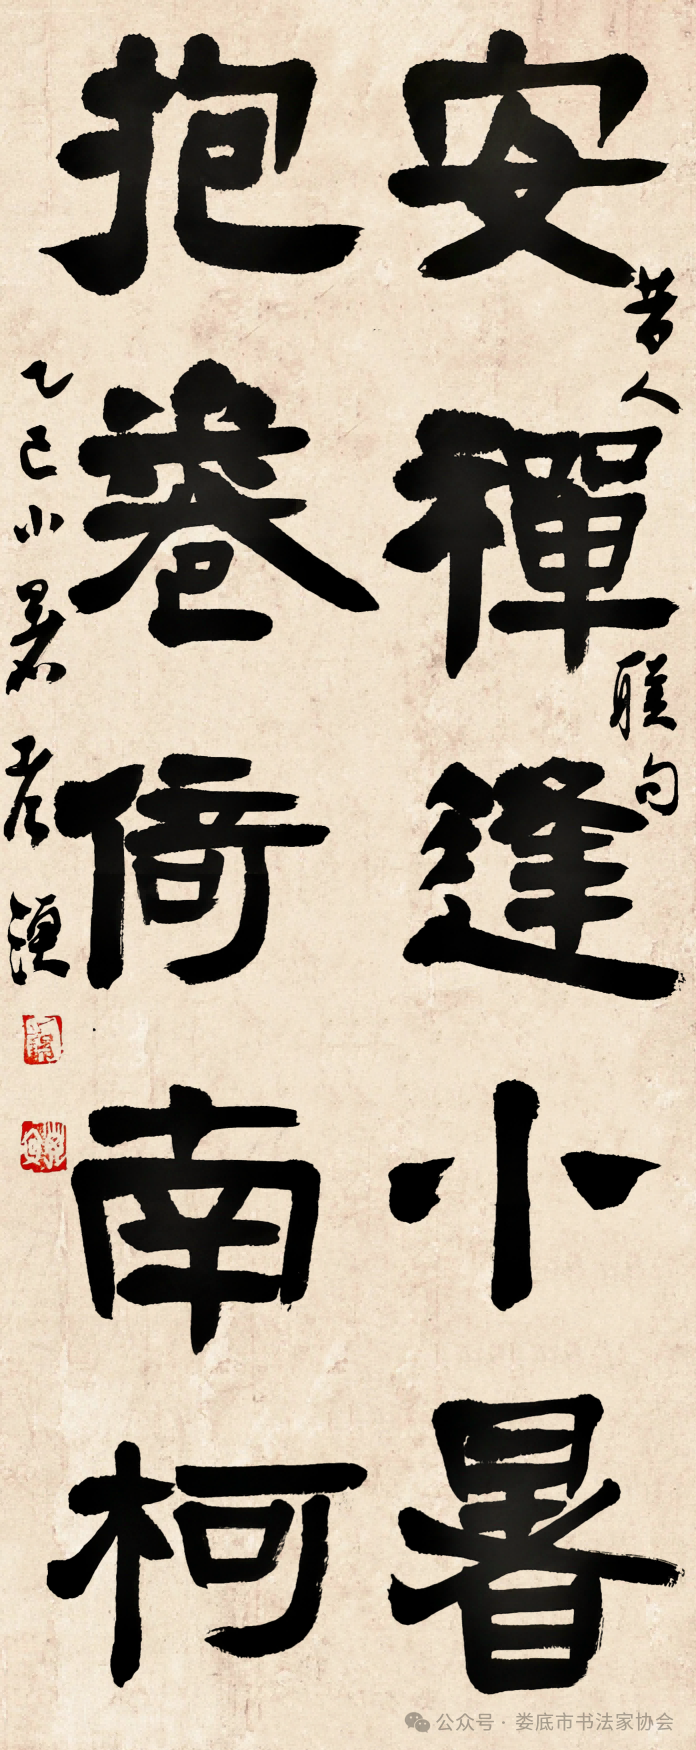 安禪逢小暑
抱卷倚南柯
昔人聯句
乙巳小暑
公众号·娄底市书法家协会